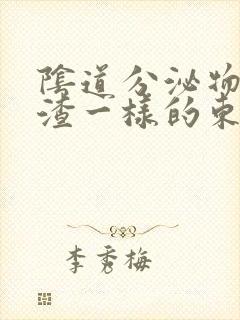 陰道分泌物
渣一樣的東
李秀梅